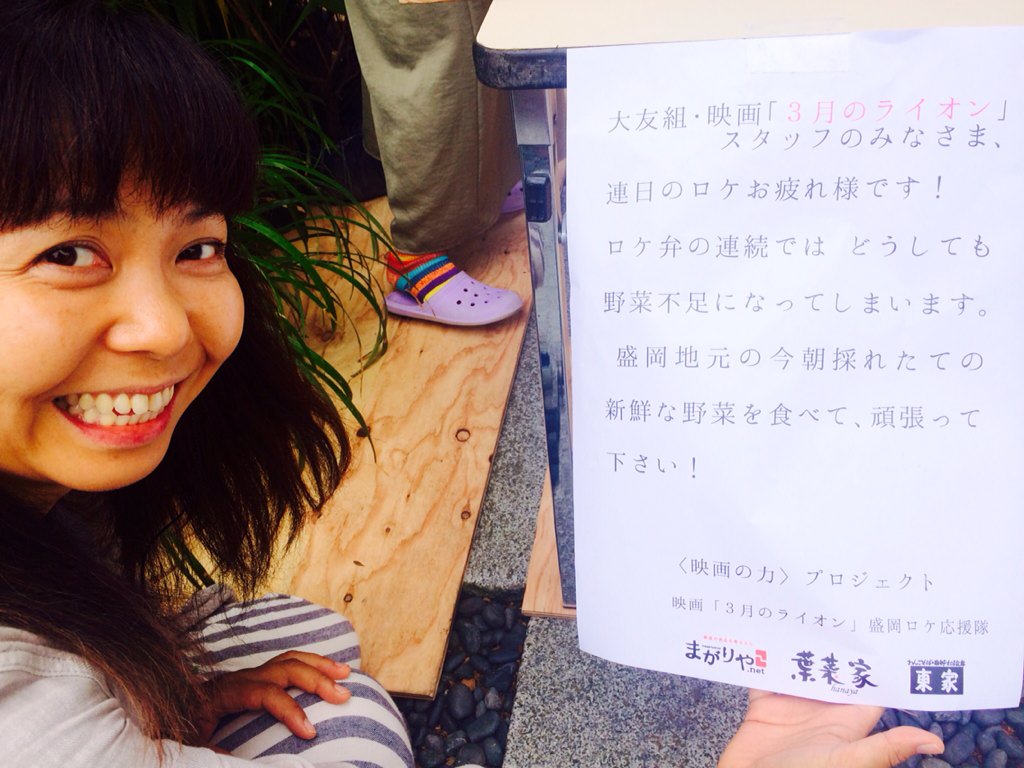 大友組・映画「３月のライオン」
スタッフのみなさま、
連日のロケお疲れ様です！
ロケ弁の連続では どうしても
野菜不足になってしまいます。
盛岡地元の今朝採れたての
新鮮な野菜を食べて、頑張って
下さい！
〈映画の力〉プロジェクト
映画「３月のライオン」盛岡ロケ応援隊
まがりや.net
葉菜家
hanaya
東家